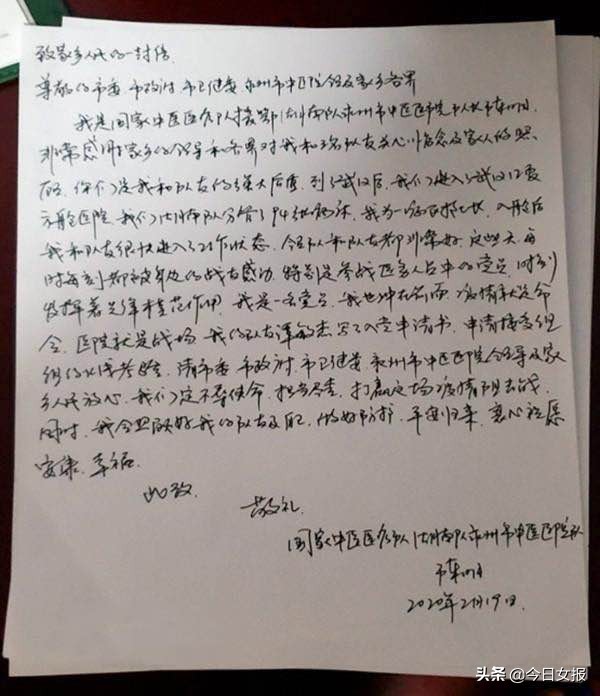 致家乡人民的一封信
尊敬的市委 市政府 市卫健委 永州市中医院领导及家乡各界
我是国家中医医疗队援鄂湖南队永州市中医医院队长
非常感谢家乡的领导和各界对我和队友关心惦念及家人的照
顾，你们是我和队友的强大后盾，到武汉后，我们进入了武汉江夏
方舱医院，我们湖南队分管了94张病床，我为一病区
我和队友很快进入了工作状态，全队队友都非常好，这些天，每
时每刻都被身边的战友感动，特别是参战医务人员中的党员，时刻
发挥着先锋模范作用，我是一名党员，我也冲在前面，疫情就是命
令，医院就是战场，我的队友写了入党申请书，申请接受组
织的火线考验，请市委 市政府 市卫健委 永州市中医医院领导及家
乡人民放心，我们定不辱使命，担当尽责，打赢这场疫情阻击战，
同时，我会照顾好我的队友及自己，做好防护，平安归来，衷心祝愿
安康，幸福。
此致
敬礼
国家中医医疗队湖南队永州市中医医院队
2020年2月19日
头条 @今日女报